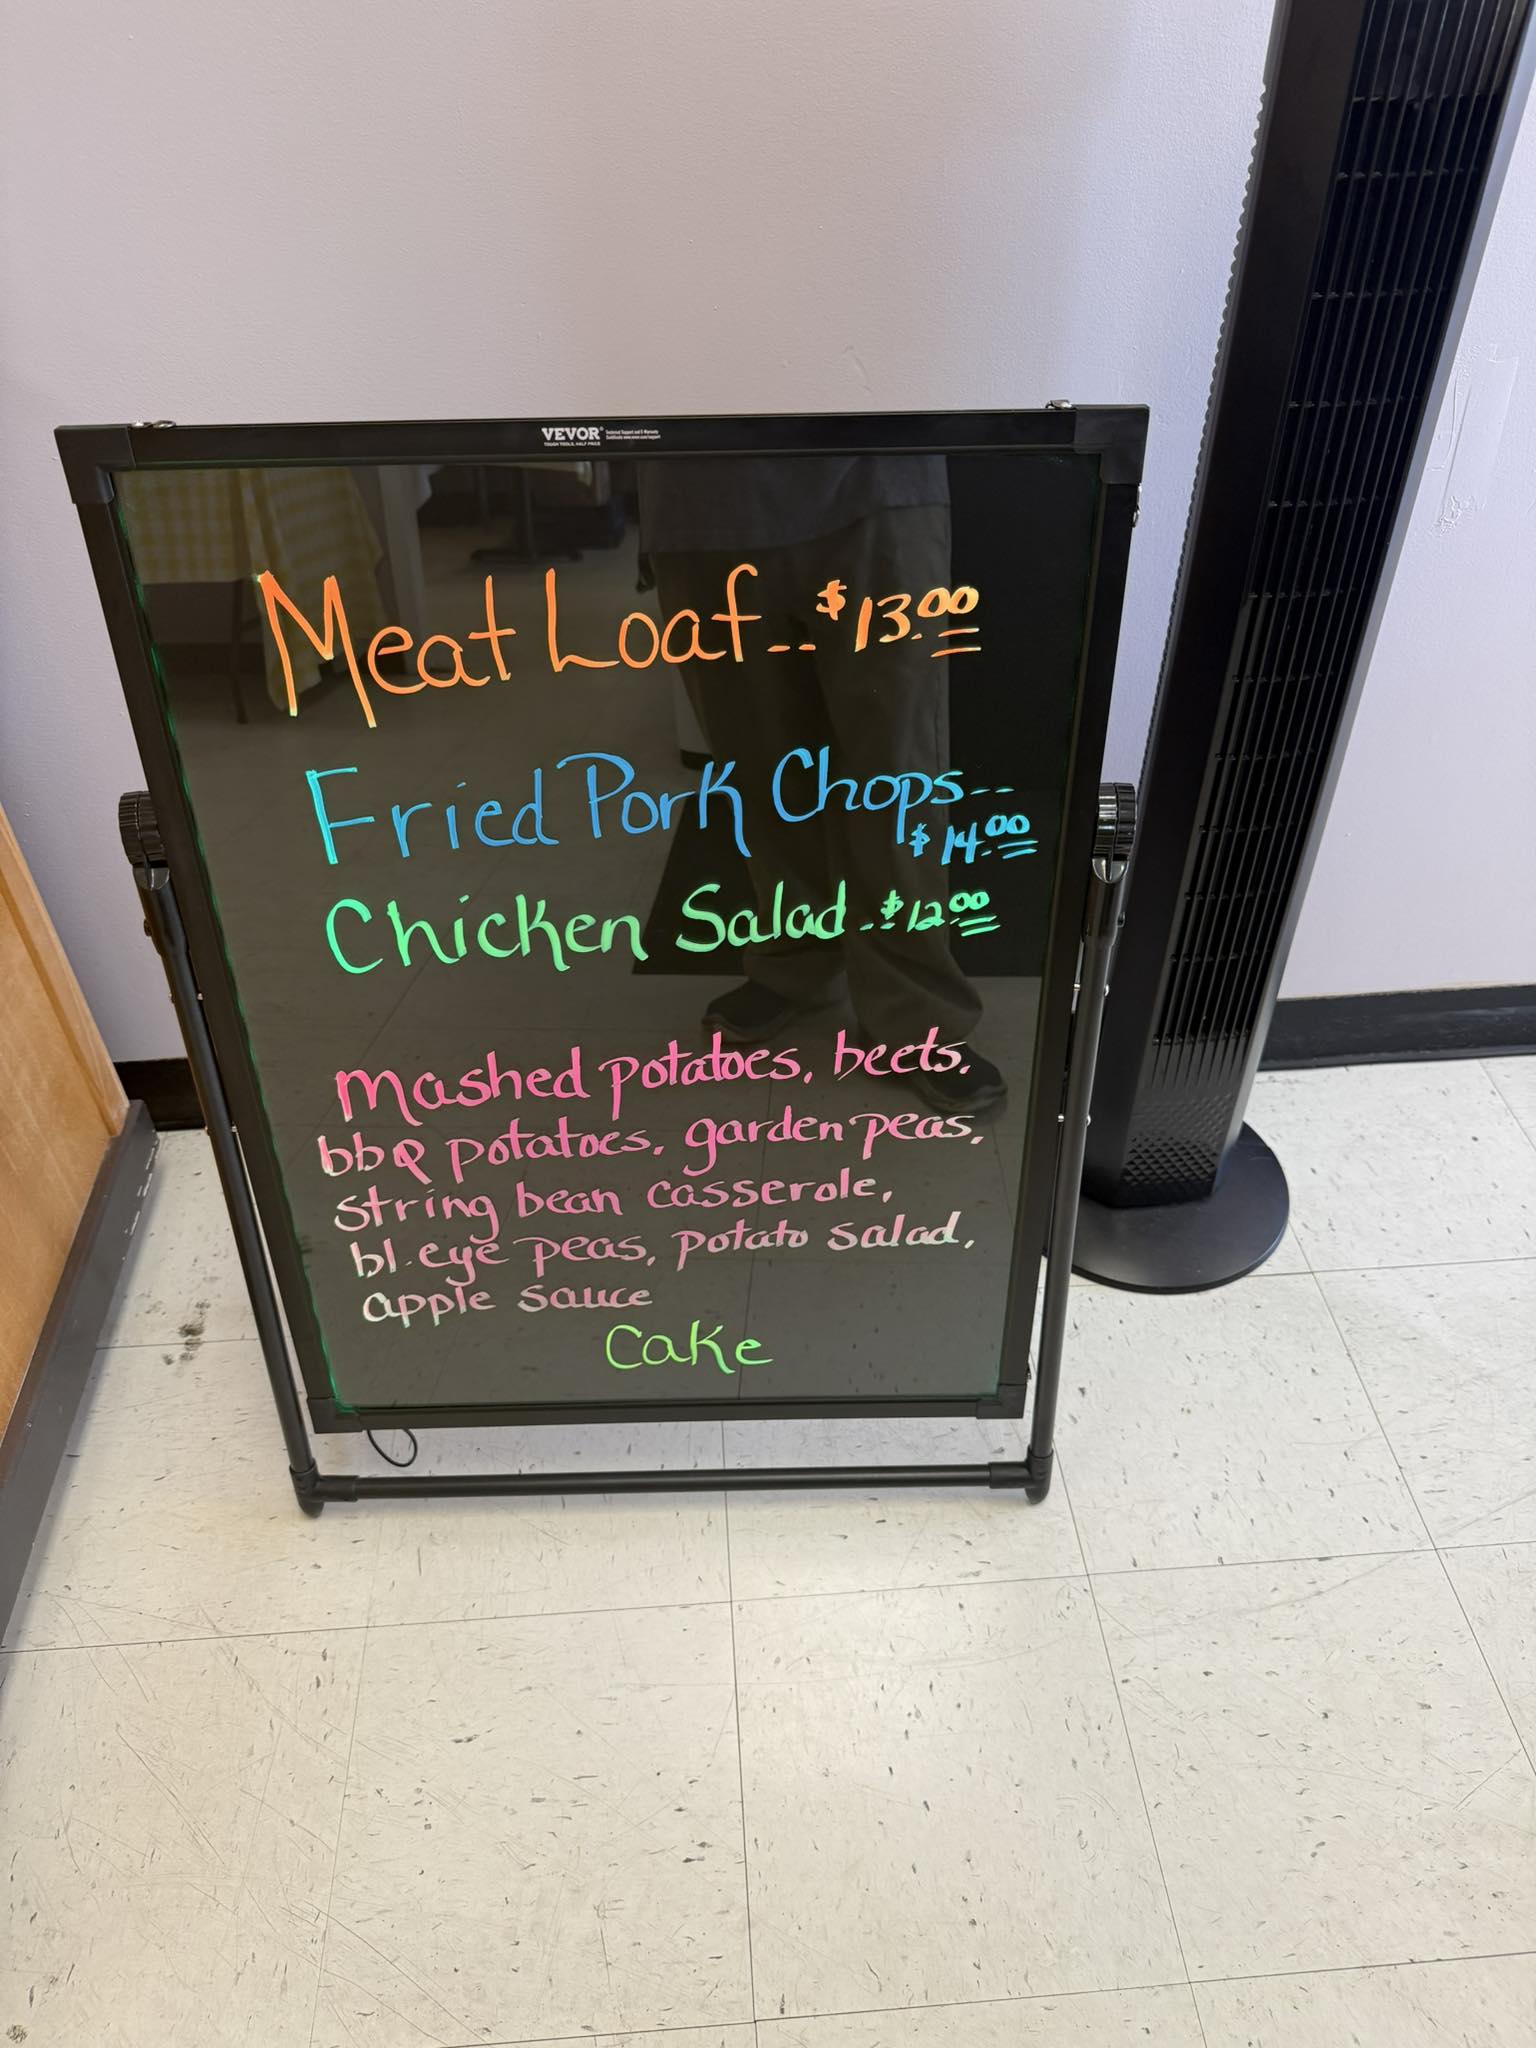 VEVOR
TOUGH TOOLS, HALF PRICE
Meat Loaf... $13.00
Fried Pork Chops...
$14.00
Chicken Salad... $12.00
Mashed potatoes, beets,
bbq potatoes, garden peas,
string bean casserole,
bl. eye peas, potato salad,
apple sauce
Cake